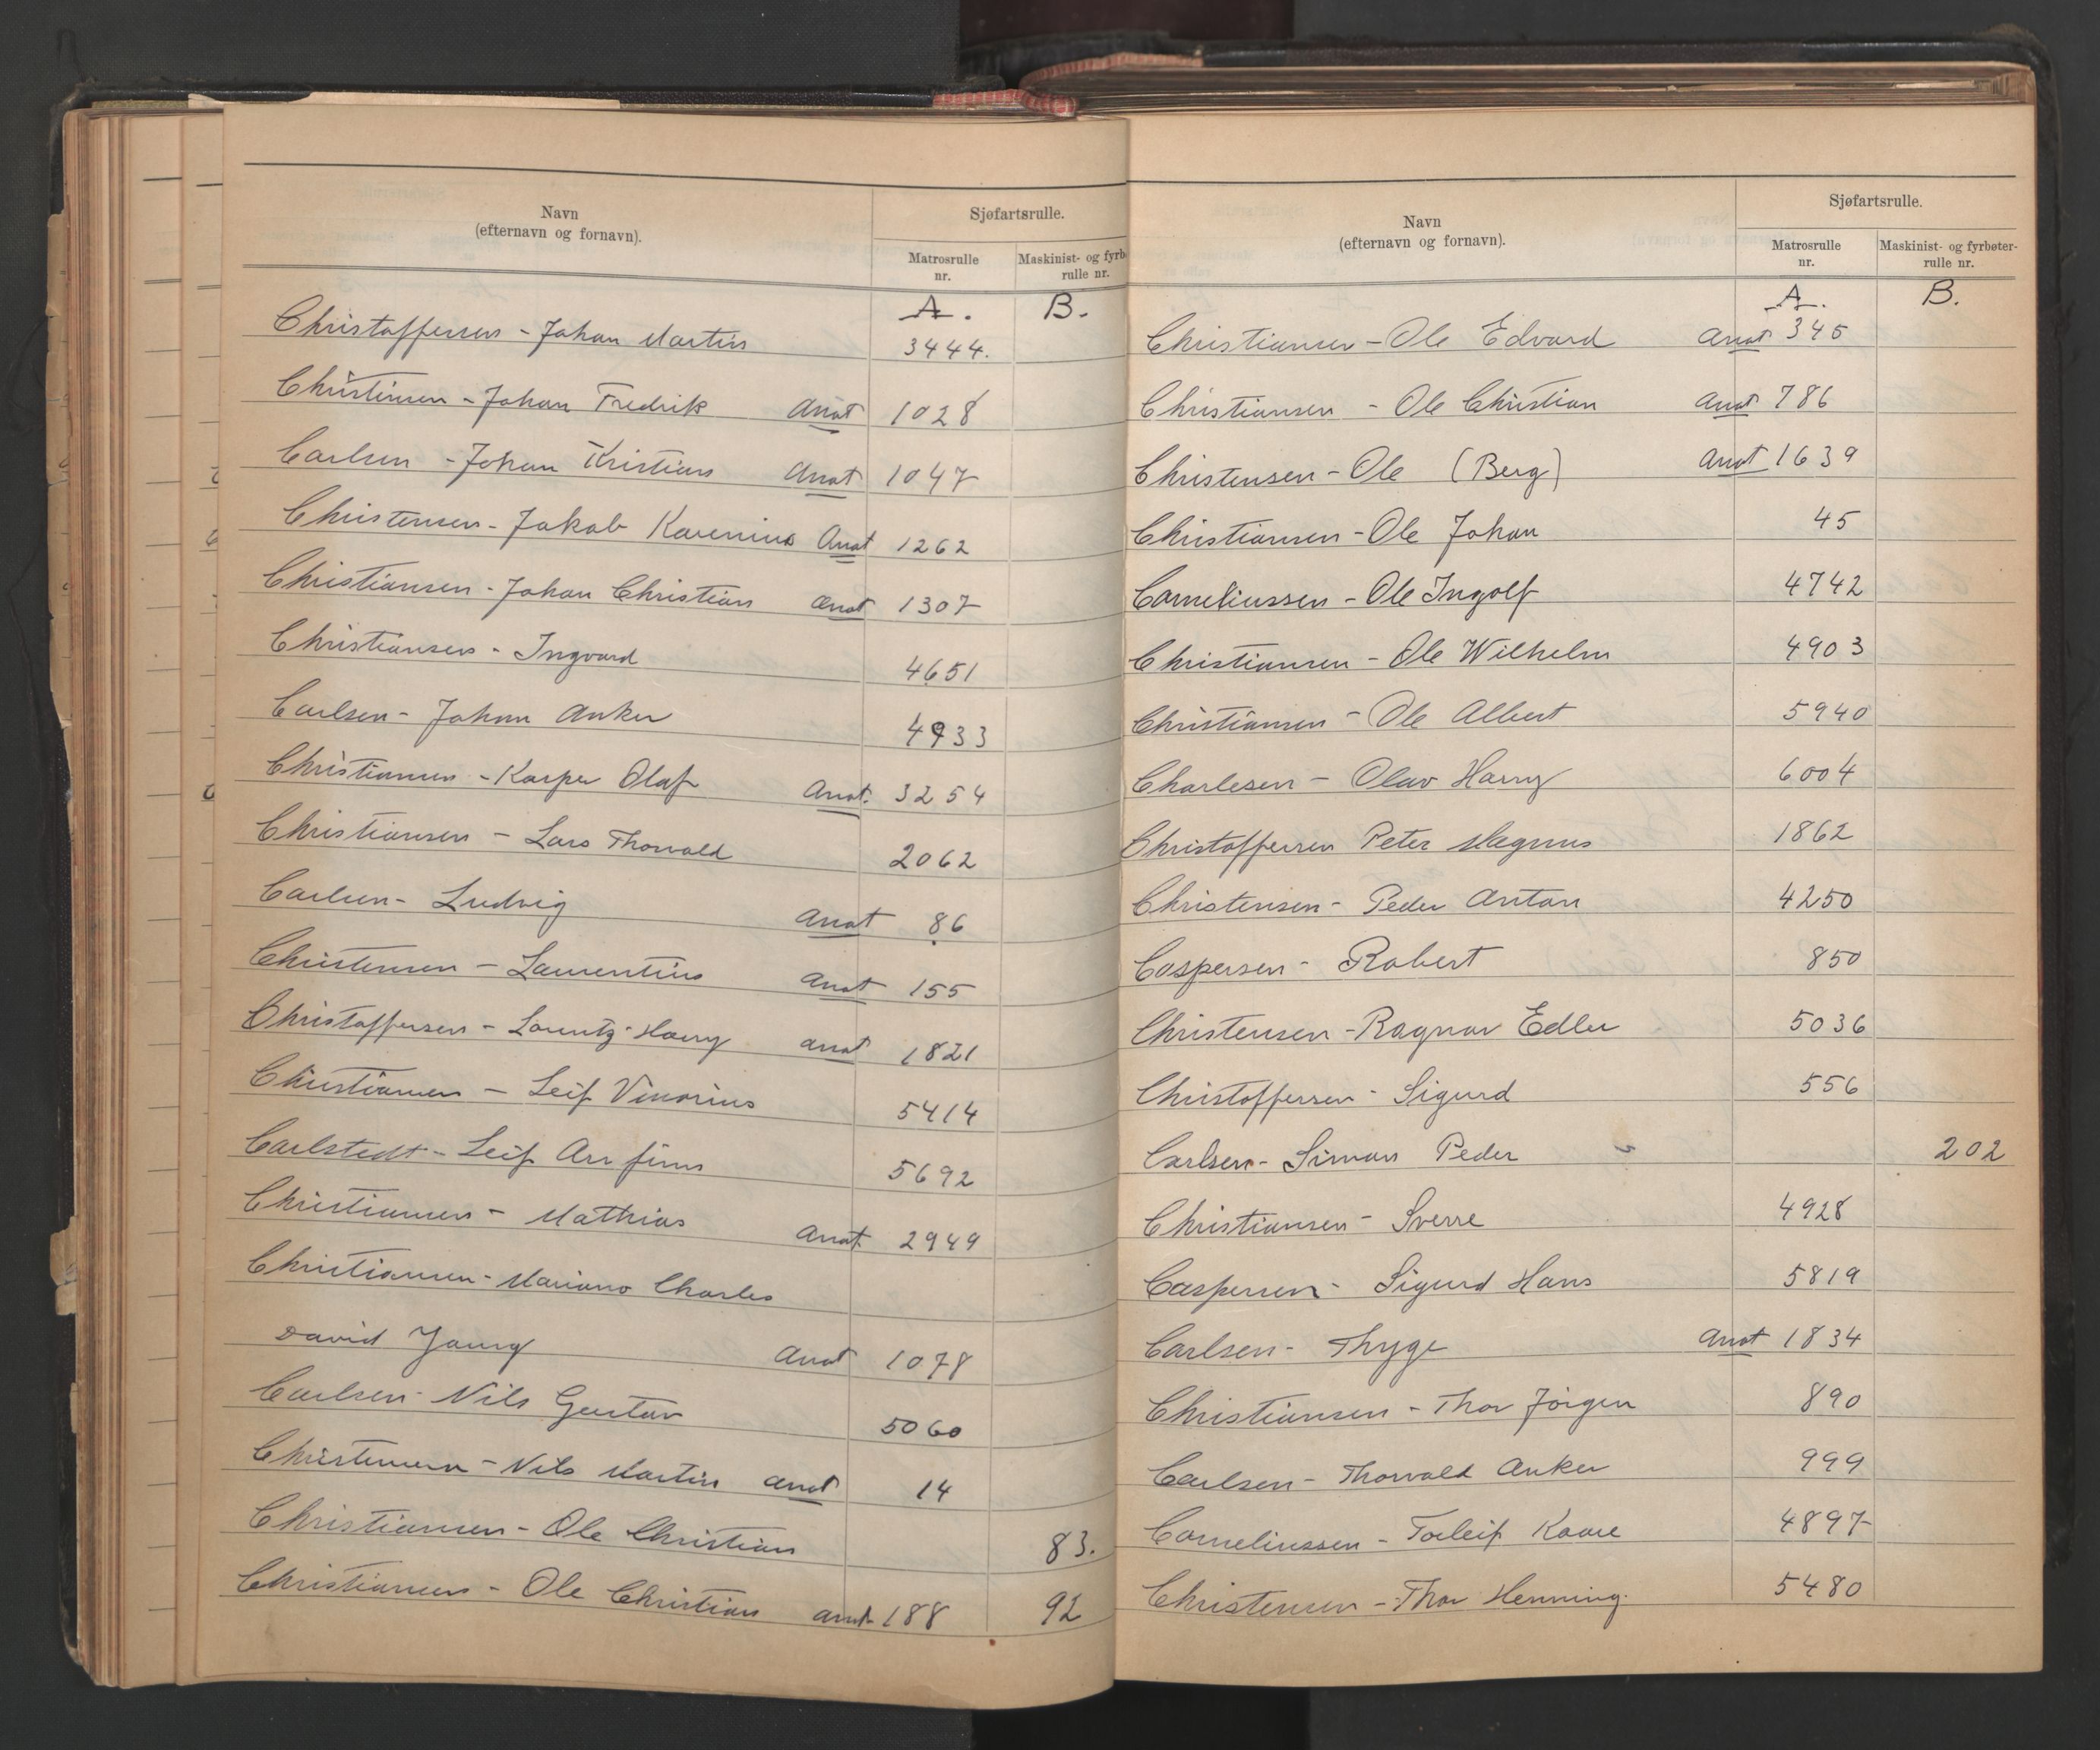 Navn
(efternavn og fornavn).
Sjøfartsrulle.
Matrosrulle nr.
Maskinist- og fyrbø
rulle nr.
A. B.
Christoffersen - Johan Martin 3444.
Christensen - Johan Fredrik Anat 1028
Carlsen - Johan Kristian Anat 1047
Christensen - Jakob Karenius Anat 1262
Christiansen - Johan Christian Anat 1307
Christiansen - Ingvard 4651
Carlsen - Johan Anker 4933
Christiansen - Kasper Olaf Anat. 3254
Christiansen - Lars Thorvald 2062
Carlsen - Ludvig Anat 86
Christensen - Laurentius Anat 155
Christoffersen - Lorentz Harry Anat 1821
Christiansen - Leif 5414
Carlstedt - Leif Arnfinn 5692
Christiansen - Mathias Anat 2949
Christiansen - Mariano Charles
David Young Anat 1078
Carlsen - Nils Gustav 5060
Christensen - Nils Martin Anat 14
Christiansen - Ole Christian 83.
Christiansen - Ole Christian Anat 188 92
Navn
(efternavn og fornavn).
Sjøfartsrulle.
Matrosrulle nr.
Maskinist- og fyrbøter-
rulle nr.
A. B.
Christiansen - Ole Edvard Anat 345
Christiansen - Ole Christian Anat 786
Christensen - Ole (Berg) Anat 1639
Christiansen - Ole Johan 45
Corneliussen - Ole Ingolf 4742
Christiansen - Ole Wilhelm 4903
Christiansen - Ole Albert 5940
Charlesen - Olav Harry 6004
Christoffersen Peter Magnus 1862
Christensen - Peder Anton 4250
Caspersen - Robert 850
Christensen - Ragnar Edler 5036
Christoffersen - Sigurd 556
Carlsen - Simon Peder 202
Christiansen - Sverre 4928
Caspersen - Sigurd Hans 5819
Carlsen - Thyge Anat 1834
Christiansen - Thor Jörgen 890
Carlsen - Thorvald Anker 999
Corneliussen - Torleif Kaare 4897
Christensen - Thor Henning. 5480